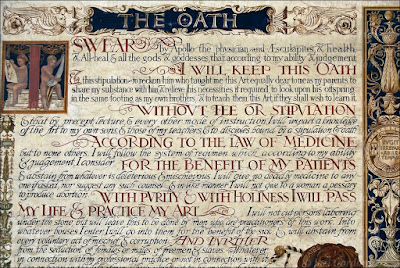 THE OATH
SWEAR by Apollo the physician and Æsculapius & health
& All-heal & all the gods & goddesses that according to my ability & judgement
I WILL KEEP THIS OATH
& this stipulation to reckon him who taught me this Art equally dear to me as my parents to
share my substance with him & relieve his necessities if required to look upon his offspring
in the same footing as my own brothers & to teach them this Art if they shall wish to learn it
WITHOUT FEE OR STIPULATION
& that by precept lecture & every other mode of instruction I will impart a knowledge
of the Art to my own sons & those of my teachers & to disciples bound by a stipulation & oath
ACCORDING TO THE LAW OF MEDICINE
but to none others I will follow the system of regimen which according to my ability
& judgement I consider FOR THE BENEFIT OF MY PATIENTS
& abstain from whatever is deleterious & mischievous I will give no deadly medicine to any
one if asked nor suggest any such counsel & in like manner I will not give to a woman a pessary
to produce abortion WITH PURITY & WITH HOLINESS I WILL PASS
MY LIFE & PRACTICE MY ART I will not cut persons labouring
under the stone but will leave this to be done by men who are practitioners of this work Into
whatever houses I enter I will go into them for the benefit of the sick & will abstain from
every voluntary act of mischief & corruption AND FURTHER
from the seduction of females or males of freemen & slaves Whatever
in connection with my professional practice or not in connection with it